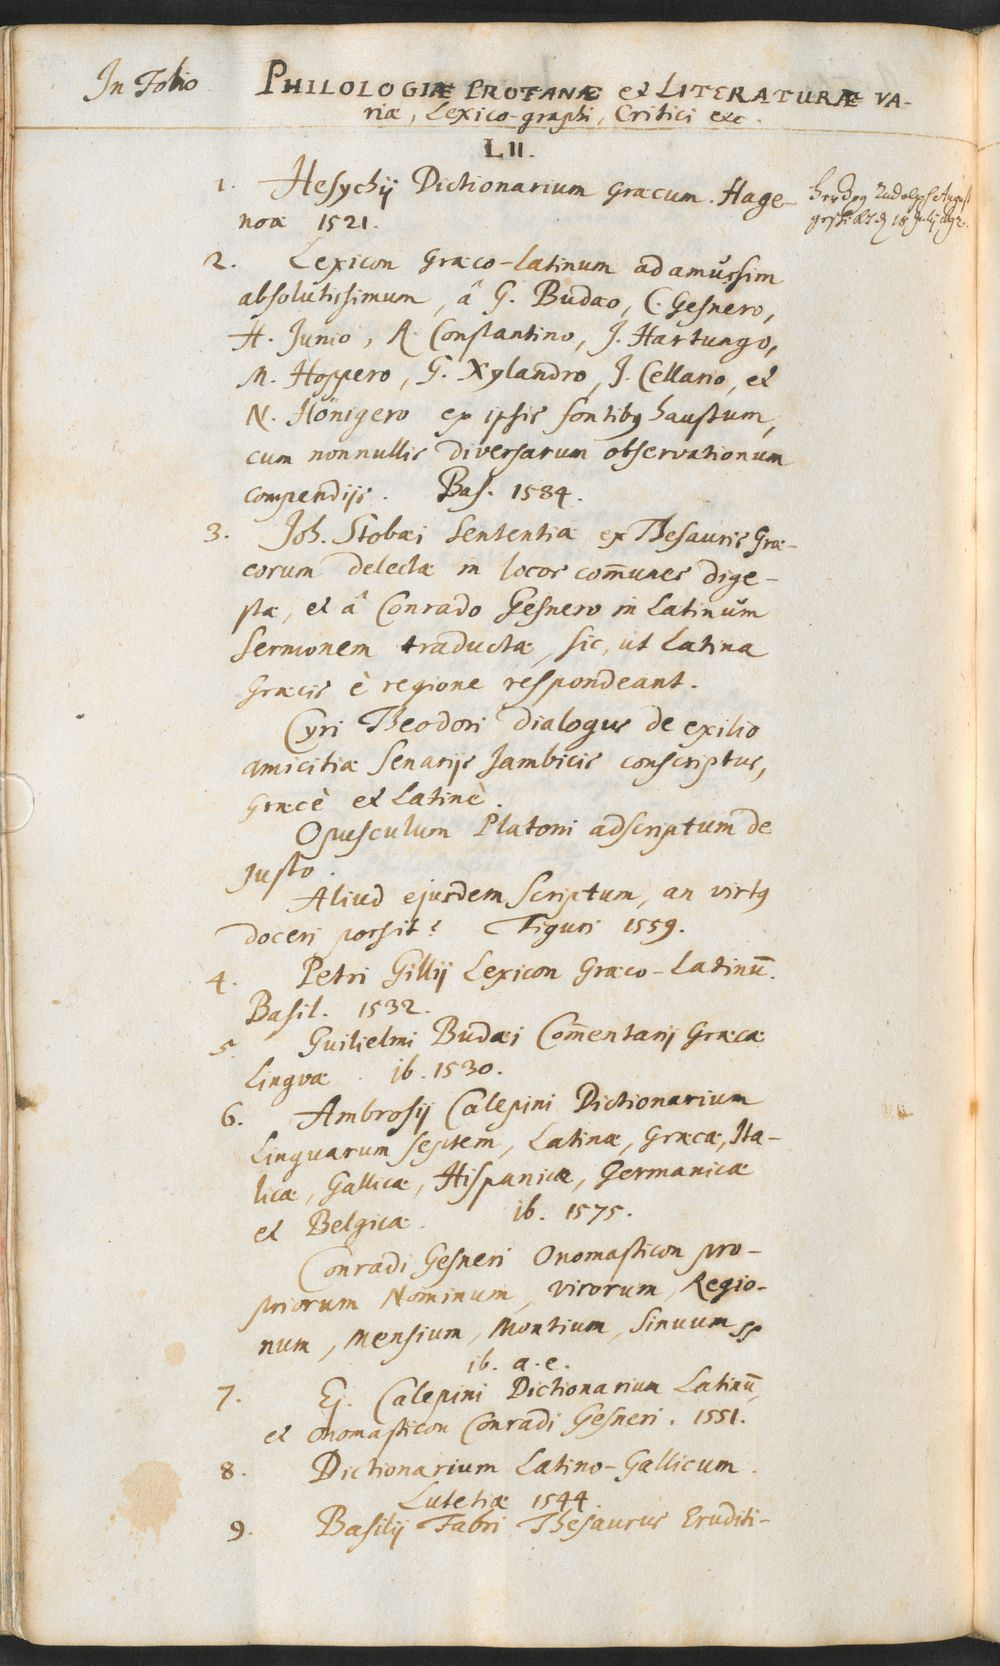 In Folio
PHILOLOGIÆ PROFANÆ et LITERATURÆ VA-
riæ, Lexico-graphi, Critici etc.
LII.
1. Hesychij Dictionarium Græcum. Hage-
noæ 1521.
Herzog Rudolph August
18 Julij
2. Lexicon Græco-latinum ad amussim
absolutissimum, â G. Budæo, C. Gesnero,
H. Junio, R. Constantino, J. Hartungo,
M. Hoppero, G. Xylandro, J. Cellario, et
N. Hönigero ex ipsis fontibꝰ haustum,
cum nonnullis diversarum observationum
compendijs. Bas. 1584.
3. Joh. Stobæi Sententiæ ex Thesauris Græ-
corum delectæ in locos com̄unes dige-
stæ, et â Conrado Gesnero in Latinum
Sermonem traductæ, sic, ut Latina
Græcis è regione respondeant.
Cyri Theodori dialogus de exilio
amicitiæ Senarijs Jambicis conscriptus,
Græcè et Latinè.
Opusculum Platoni adscriptum de
Justo.
Aliud ejusdem Scriptum, an virtꝰ
doceri possit? Tiguri 1559.
4. Petri Gillij Lexicon Græco-Latinū.
Basil. 1532.
5. Guilielmi Budæi Com̄entarij Græcæ
Linguæ. ib. 1530.
6. Ambrosij Calepini Dictionarium
Linguarum septem, Latinæ, Græcæ, Ita-
licæ, Gallicæ, Hispanicæ, Germanicæ
et Belgicæ. ib. 1575.
Conradi Gesneri Onomasticon pro-
priorum Nominum, Virorum, Regio-
num, Mensium, Montium, Sinuum
ib. a. e.
7. Ej. Calepini Dictionarium Latinū,
et Onomasticon Conradi Gesneri. 1551.
8. Dictionarium Latino-Gallicum.
Lutetiæ 1544.
9. Basilij Fabri Thesaurus Eruditi-